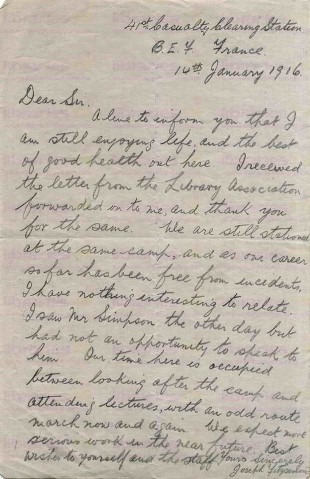 41st Casualty Clearing Station
B.E.F. France.
14th January 1916.
Dear Sir.
A line to inform you that I
am still enjoying life, and the best
of good health out here I received
the letter from the Library Association
forwarded on to me, and thank you
for the same. We are still stationed
at the same camp, and as our career
so far has been free from incidents,
I have nothing interesting to relate.
I saw Mr Simpson the other day but
had not an opportunity to speak to
him Our time here is occupied
between looking after the camp and
attending lectures, with an odd route
march now and again We expect more
serious work in the near future. Best
wishes to yourself and the staff, Yours Sincerely
Joseph